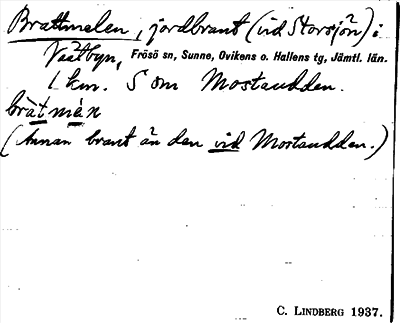 Brattmelen, jordbrant (vid Storsjön) i
Västbyn, Frösö sn, Sunne, Ovikens o. Hallens tg, Jämtl. län.
1 km. S om Mostaudden.
bràt mèn
(Annan brant än den vid Mostaudden.)
C. LINDBERG 1937.